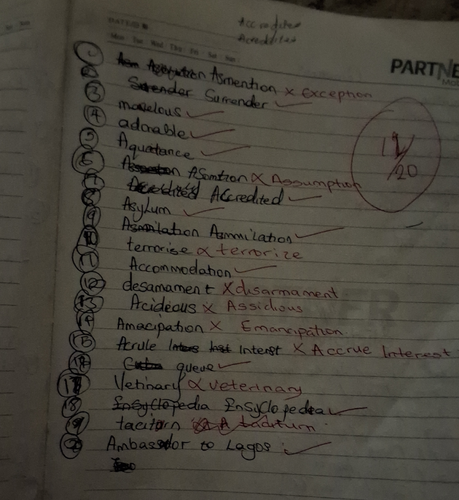 DATE
Accredited
Accredited
Mon Tue Wed Thu Fri Sat Sun
PARTNE
1 Asmention x Exception
2 Surender Surrender ✓
3 movelous ✓
4 adorable ✓
5 Aquatance ✓
6 Asomtion x Assumption
7 Accredited ✓
8 Asylum ✓
9 Asmilation Asmmilation ✓
10 terrorise x terrorize
11 Accommodation ✓
12 desamament x disarmament
13 Acideous x Assidious
14 Amacipation x Emancipation
15 Acrule Interst x Accrue Interest
queue ✓
Vetinary x veterinary
18 Ensyclopedia Ensyclopedea ✓
19 taciturn
Ambassdor to Lagos ✓
12/20